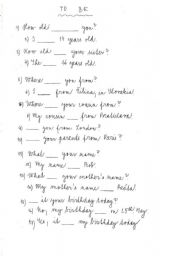 TO BE
1) How old ____ you?
a) I ____ 14 years old.
2) How old ____ your sister?
b) The ____ 16 years old.
3) Where ____ you from?
a) I ____ from Žilina, in Slovakia
4) Where ____ your cousin from?
a) My cousin ____ from Bratislava.
5) ____ you from London?
6) ____ your parents from Paris?
7) What ____ your name?
a) My name ____ Bob.
8) What ____ your mother's name?
a) My mother's name ____
9) ____ it your birthday today?
a) No, my birthday ____ on 15th May
b) Yes, it ____ my birthday today.